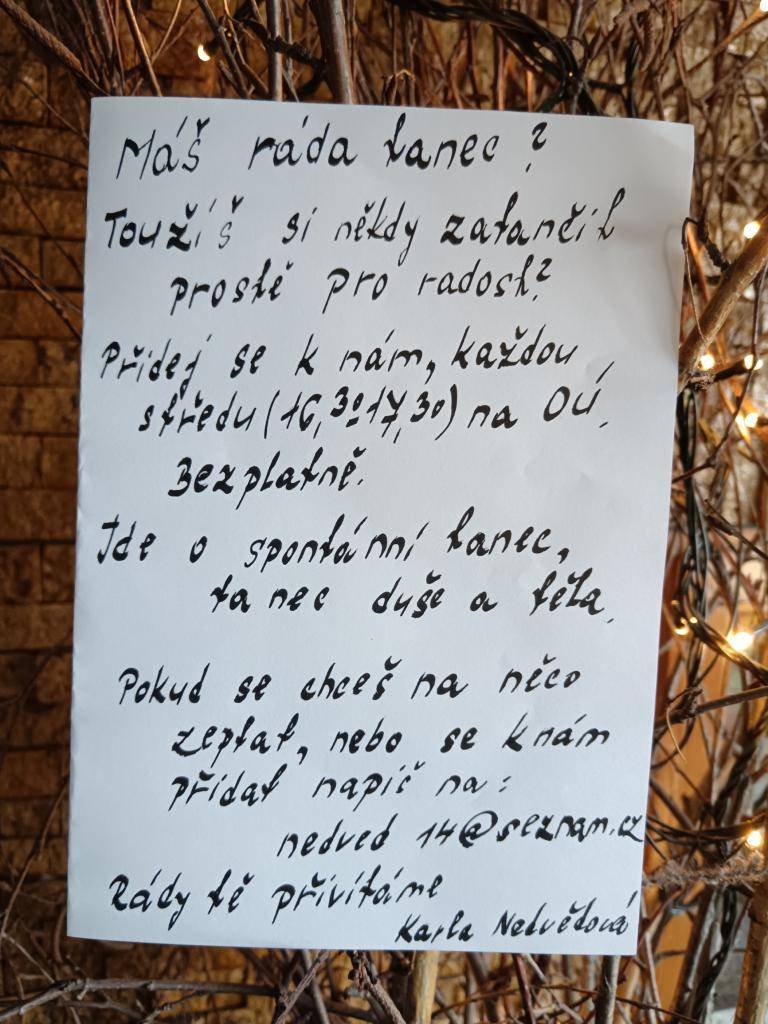 Máš ráda tanec?
Toužíš si někdy zatančit
prostě pro radost?
Přidej se k nám, každou
středu (16,30-17,30) na OÚ.
Bezplatně.
Jde o spontánní tanec,
tanec duše a těla.
Pokud se chceš na něco
zeptat, nebo se k nám
přidat napiš na:
nedved14@seznam.cz
Rády tě přivítáme
Karla Nedvěďová